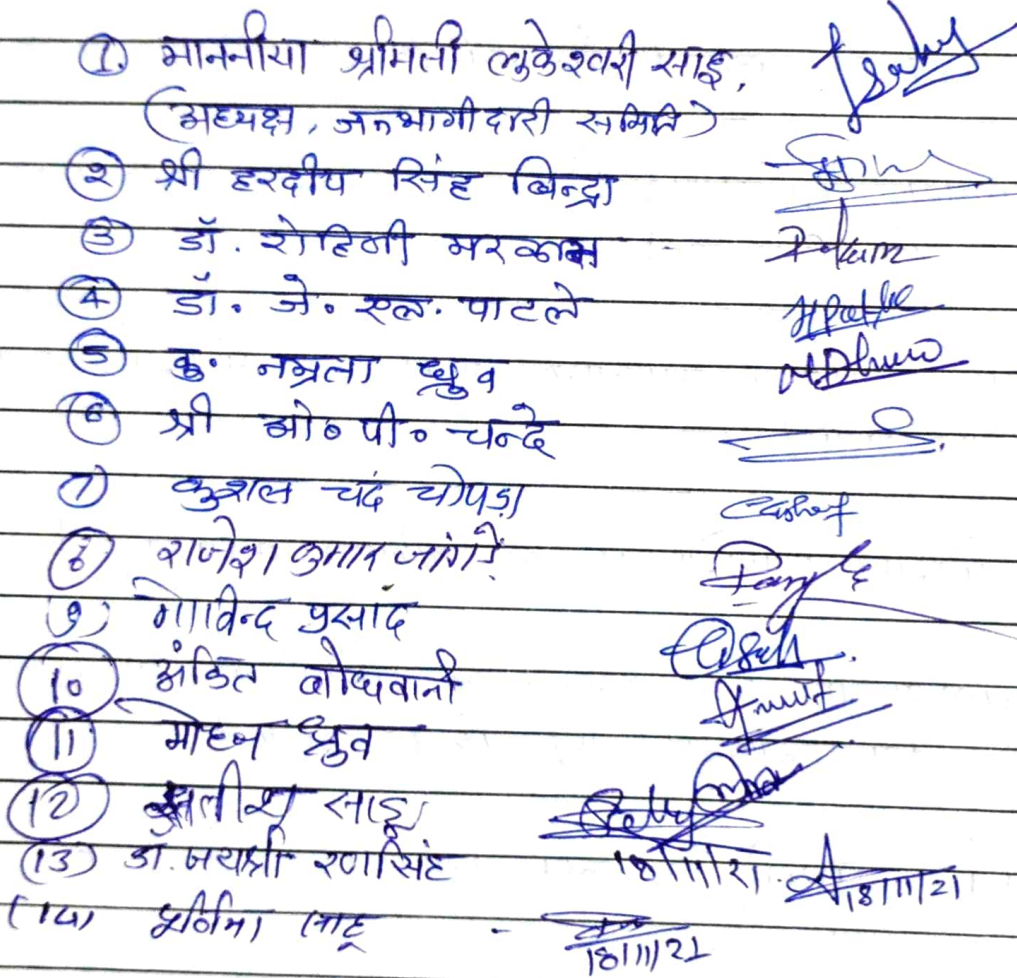 ① माननीया श्रीमती लुकेश्वरी साहू,
(अध्यक्ष, जनभागीदारी समिति)
② श्री हरदीप सिंह बिन्द्रा
③ डॉ. रोहिणी मरकाम
④ डॉ. जे. एल. पाटले
⑤ कु. नम्रता ध्रुव NDhruw
⑥ श्री ओ० पी० चन्दे
⑦ कुशल चंद चोपड़ा
⑧ राजेश कुमार जांगड़े
⑨ गोविन्द प्रसाद
⑩ अंकित बोधवानी
⑪ मोहन ध्रुव
⑫ सतीश साहू
18/11/21
(13) डा. जयश्री रणसिंह 18/11/21
(14) पूर्णिमा साहू - 18/11/21